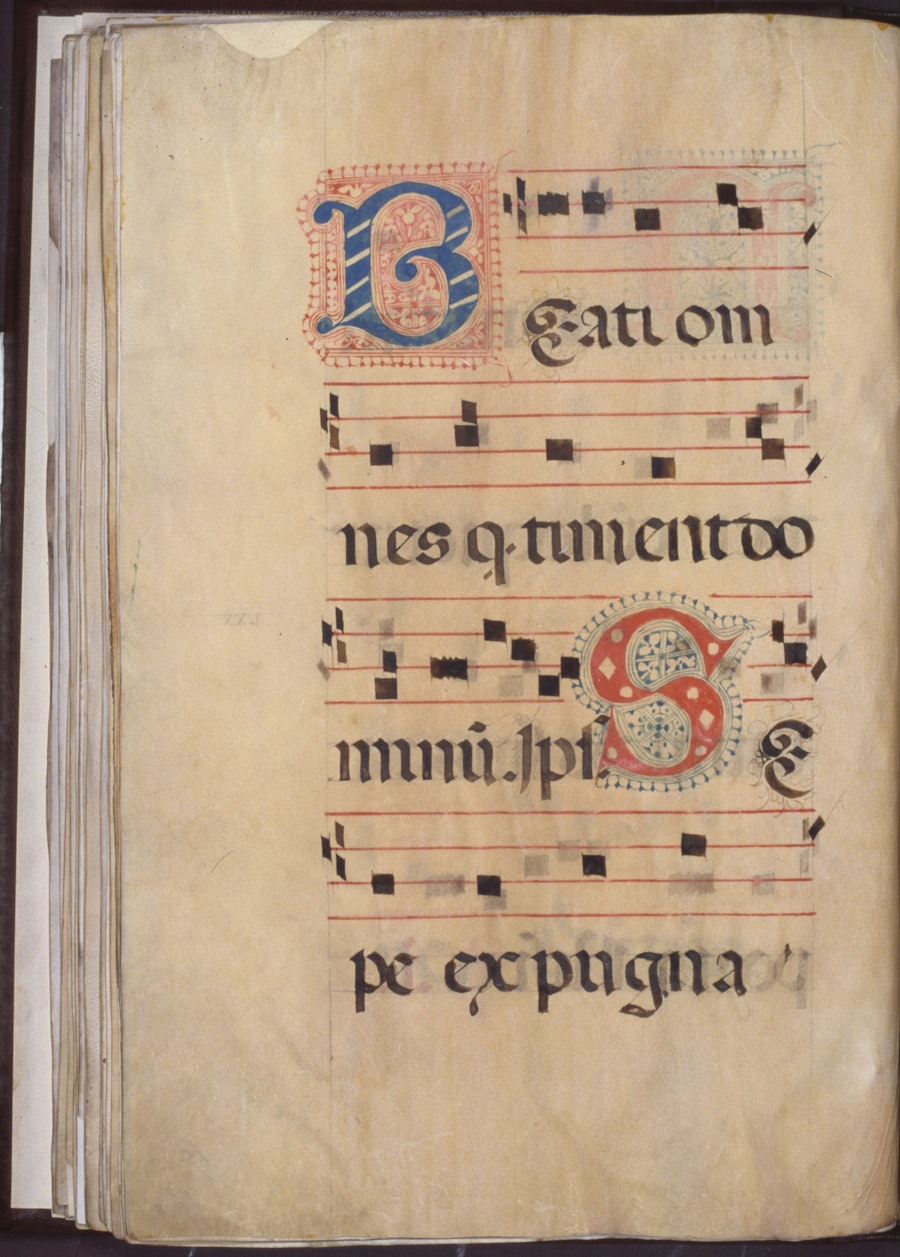 BEati om
nes q. timent do
minū. ℣ps̄. SE
pe expugna